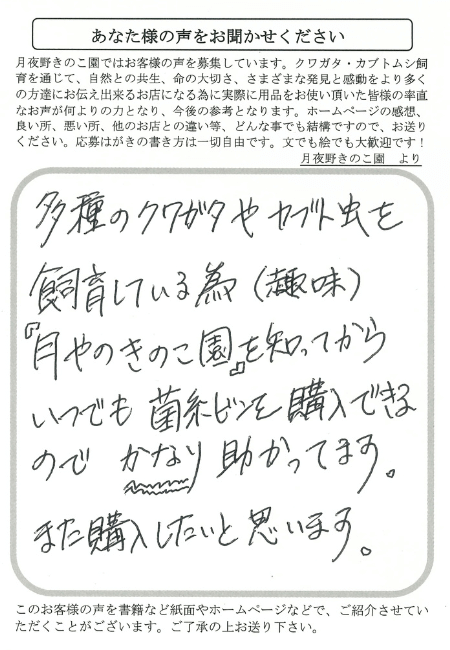 あなた様の声をお聞かせください
月夜野きのこ園ではお客様の声を募集しています。クワガタ・カブトムシ飼
育を通じて、自然との共生、命の大切さ、さまざまな発見と感動をより多く
の方達にお伝え出来るお店になる為に実際に用品をお使い頂いた皆様の率直
なお声が何よりの力となり、今後の参考となります。ホームページの感想、
良い所、悪い所、他のお店との違い等、どんな事でも結構ですので、お送り
ください。応募はがきの書き方は一切自由です。文でも絵でも大歓迎です！
月夜野きのこ園　より
多種のクワガタや カブト虫を
飼育している為（趣味）
『月やのきのこ園』を知ってから
いつでも 菌糸ビンを 購入できる
ので かなり 助かってます。
また購入したいと思います。
このお客様の声を書籍など紙面やホームページなどで、ご紹介させてい
ただくことがございます。ご了承の上お送り下さい。